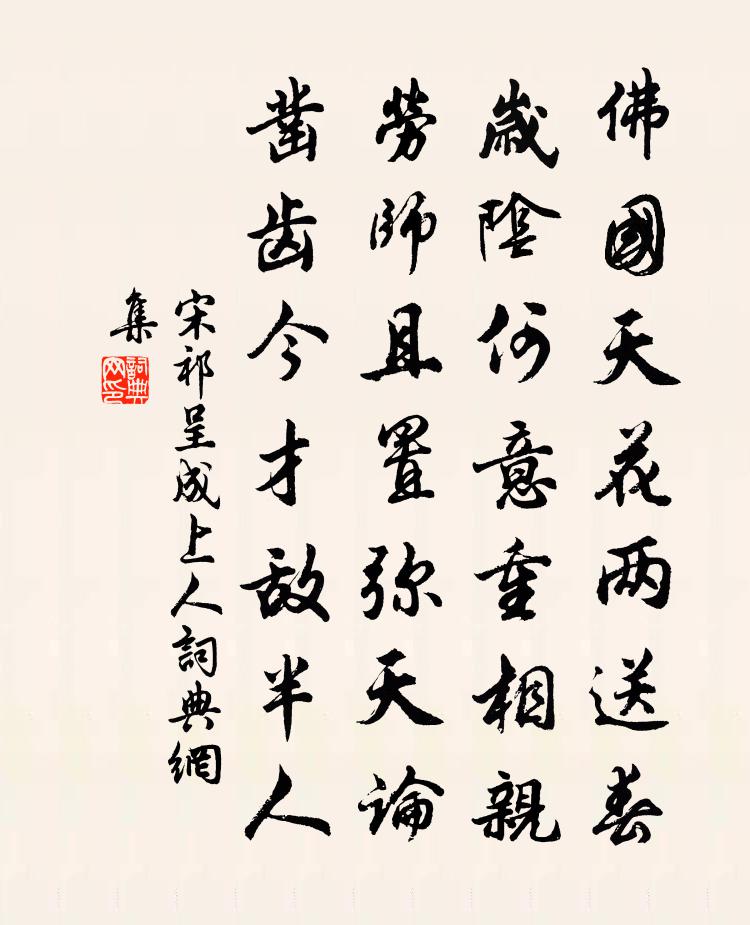 佛國天花两送春
嵗陰何意重相親
勞師且置弥天論
凿齿今才敌半人
宋祁呈成上人詞典網
集
詞典
网印